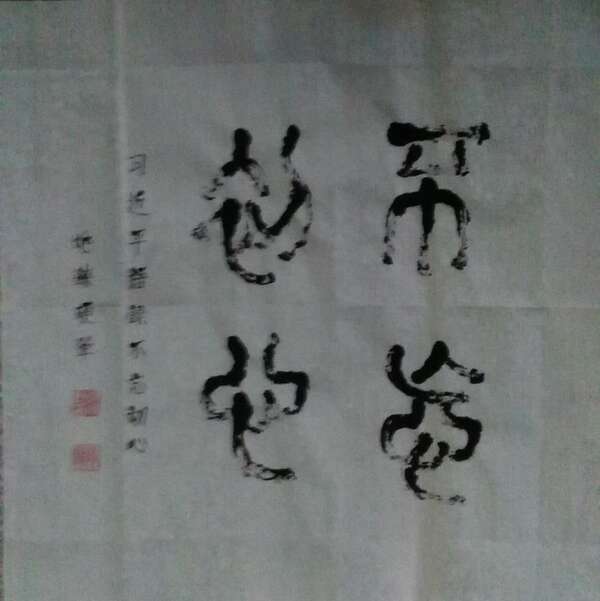 不忘
初心
习近平語録不忘初心